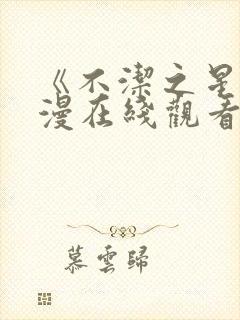 《不潔之星
漫在綫觀看
慕雲歸